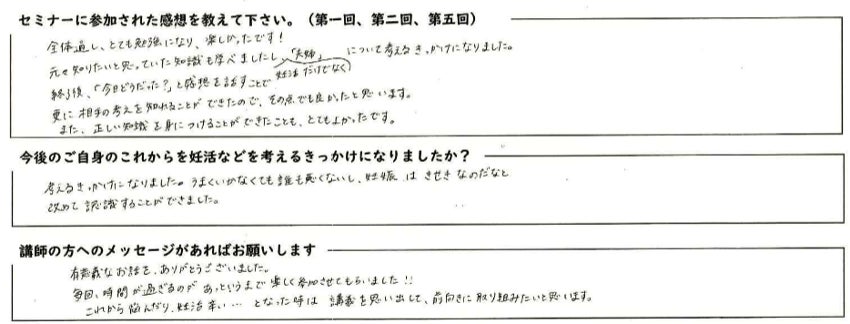 セミナーに参加された感想を教えて下さい。（第一回、第二回、第五回）
全体通し、とても勉強になり、楽しかったです！
元々知りたいと思っていた知識も学べましたし、「夫婦」について考えるきっかけになりました。
妊活だけでなく
終了後、「今日どうだった？」と感想を話すことで
更に相手の考えを知れることができたので、その点でも良かったと思います。
また、正しい知識を身につけることができたことも、とてもよかったです。
今後のご自身のこれからを妊活などを考えるきっかけになりましたか？
考えるきっかけになりました。うまくいかなくても誰も悪くないし、妊娠はきせきなのだなと
改めて認識することができました。
講師の方へのメッセージがあればお願いします
有意義なお話を、ありがとうございました。
毎回、時間が過ぎるのがあっというまで楽しく参加させてもらいました！！
これから悩んだり、妊活辛い…となった時は講義を思い出して、前向きに取り組みたいと思います。